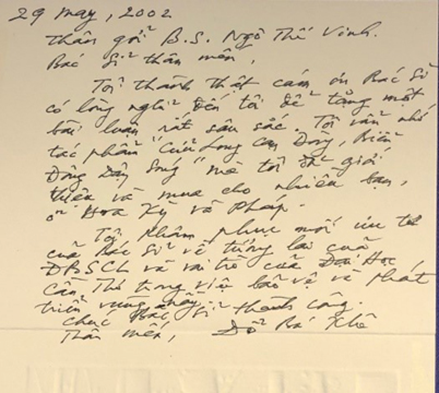 29 may, 2002
Thân gởi B.S. Ngô Thế Vinh.
Bác Sĩ thân mến,
Tôi thành thật cám ơn Bác Sĩ
có lòng nghĩ đến tôi để tặng một
bài luận rất sâu sắc. Tôi vẫn nhớ
tác phẩm "Cửu Long Cạn Dòng, Biển
Đông Dậy Sóng" mà tôi đã giới
thiệu và mua cho nhiều bạn,
ở Hoa Kỳ và Pháp.
Tôi khâm phục mối ưu tư
của Bác Sĩ về tương lai của
ĐBSCL và vai trò của Đại Học
Cần Thơ trong việc bảo vệ và phát
triển vùng này.
Chúc Bác Sĩ thành công.
Thân mến, Đỗ Bá Khê